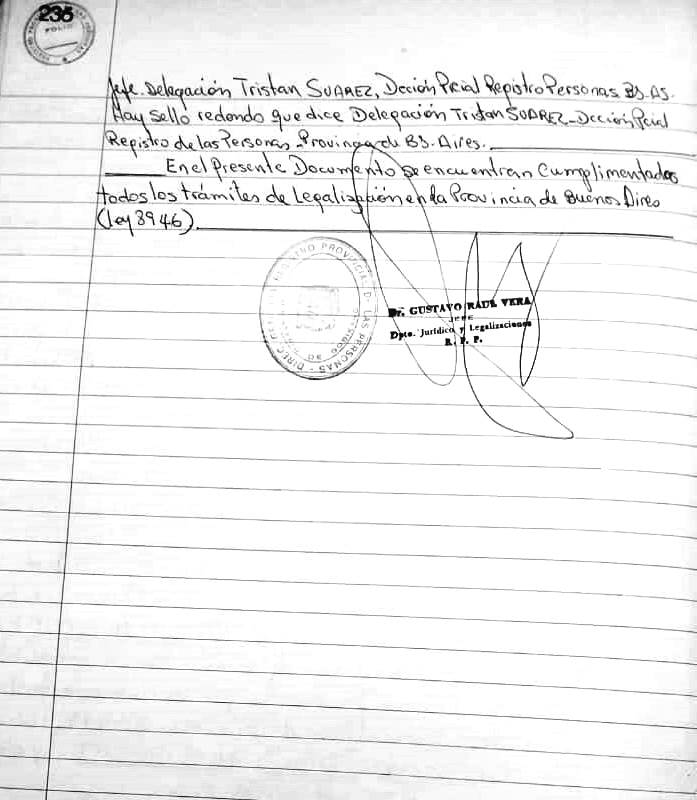 236
FOLIO
Jefe. Delegación Tristan SUAREZ, Dcción Pcial Registro Personas BS. AS.
Hay Sello redondo que dice Delegación Tristan SUAREZ - Dcción Pcial
Registro de las Personas - Provincia de BS. Aires.
En el Presente Documento se encuentran Cumplimentados
todos los trámites de Legalización en la Provincia de Buenos Aires
(Ley 8946).
REGISTRO PROVINCIAL D LAS PERSONAS
Dr. GUSTAVO RAUL VERA
JEFE
Dpto. Jurídico y Legalizaciones
R. P. P.